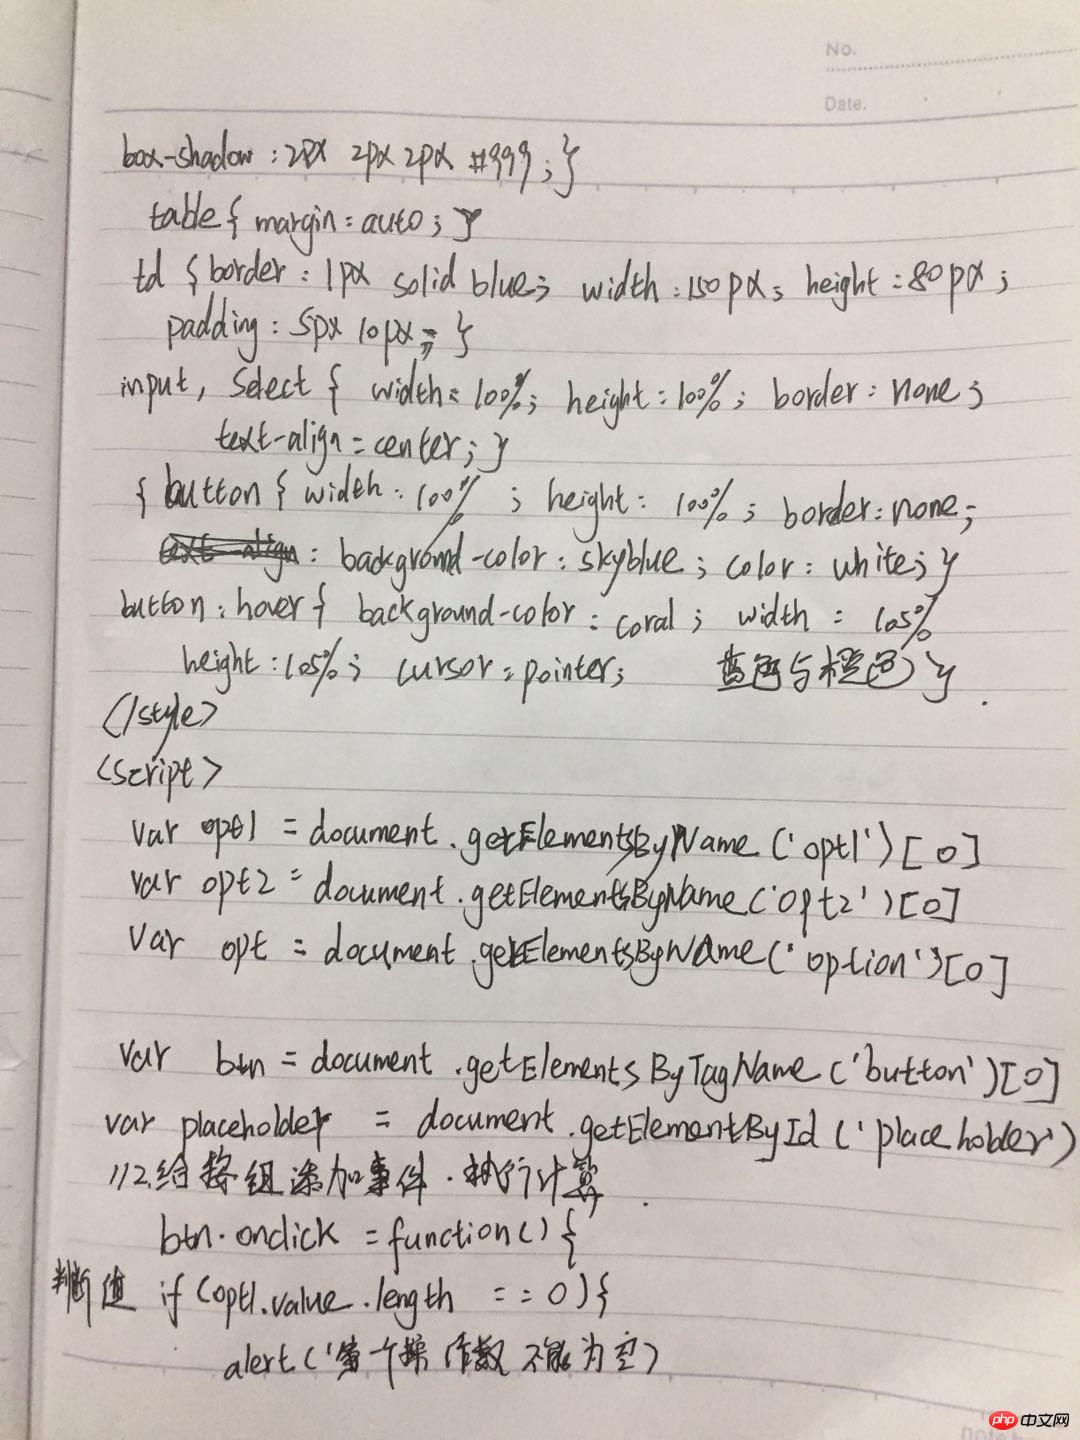 No.
Date.
box-shadow : 2px 2px 2px #999 ; }
table { margin : auto ; }
td { border : 1px solid blue; width : 150px; height : 80px ;
padding : 5px 10px ; }
input, select { width : 100%; height : 100% ; border : none ;
text-align : center ; }
{ button { width : 100% ; height : 100% ; border : none ;
text-align : background-color : skyblue ; color : white ; }
button : hover { background-color : coral ; width : 105%
height : 105% ; cursor : pointer ; 蓝色与橙色 } .
</style>
<script>
var opt1 = document.getElementsByName ('opt1')[0]
var opt2 = document.getElementsByName('opt2')[0]
var opt = document.getElementsByName('option')[0]
var btn = document.getElementsByTagName ('button')[0]
var placeholder = document.getElementById ('placeholder')
//2.给按钮添加事件.执行计算.
btn.onclick = function() {
判断值 if (opt1.value.length == 0) {
alert('第一个操作数不能为空)
php 中文网